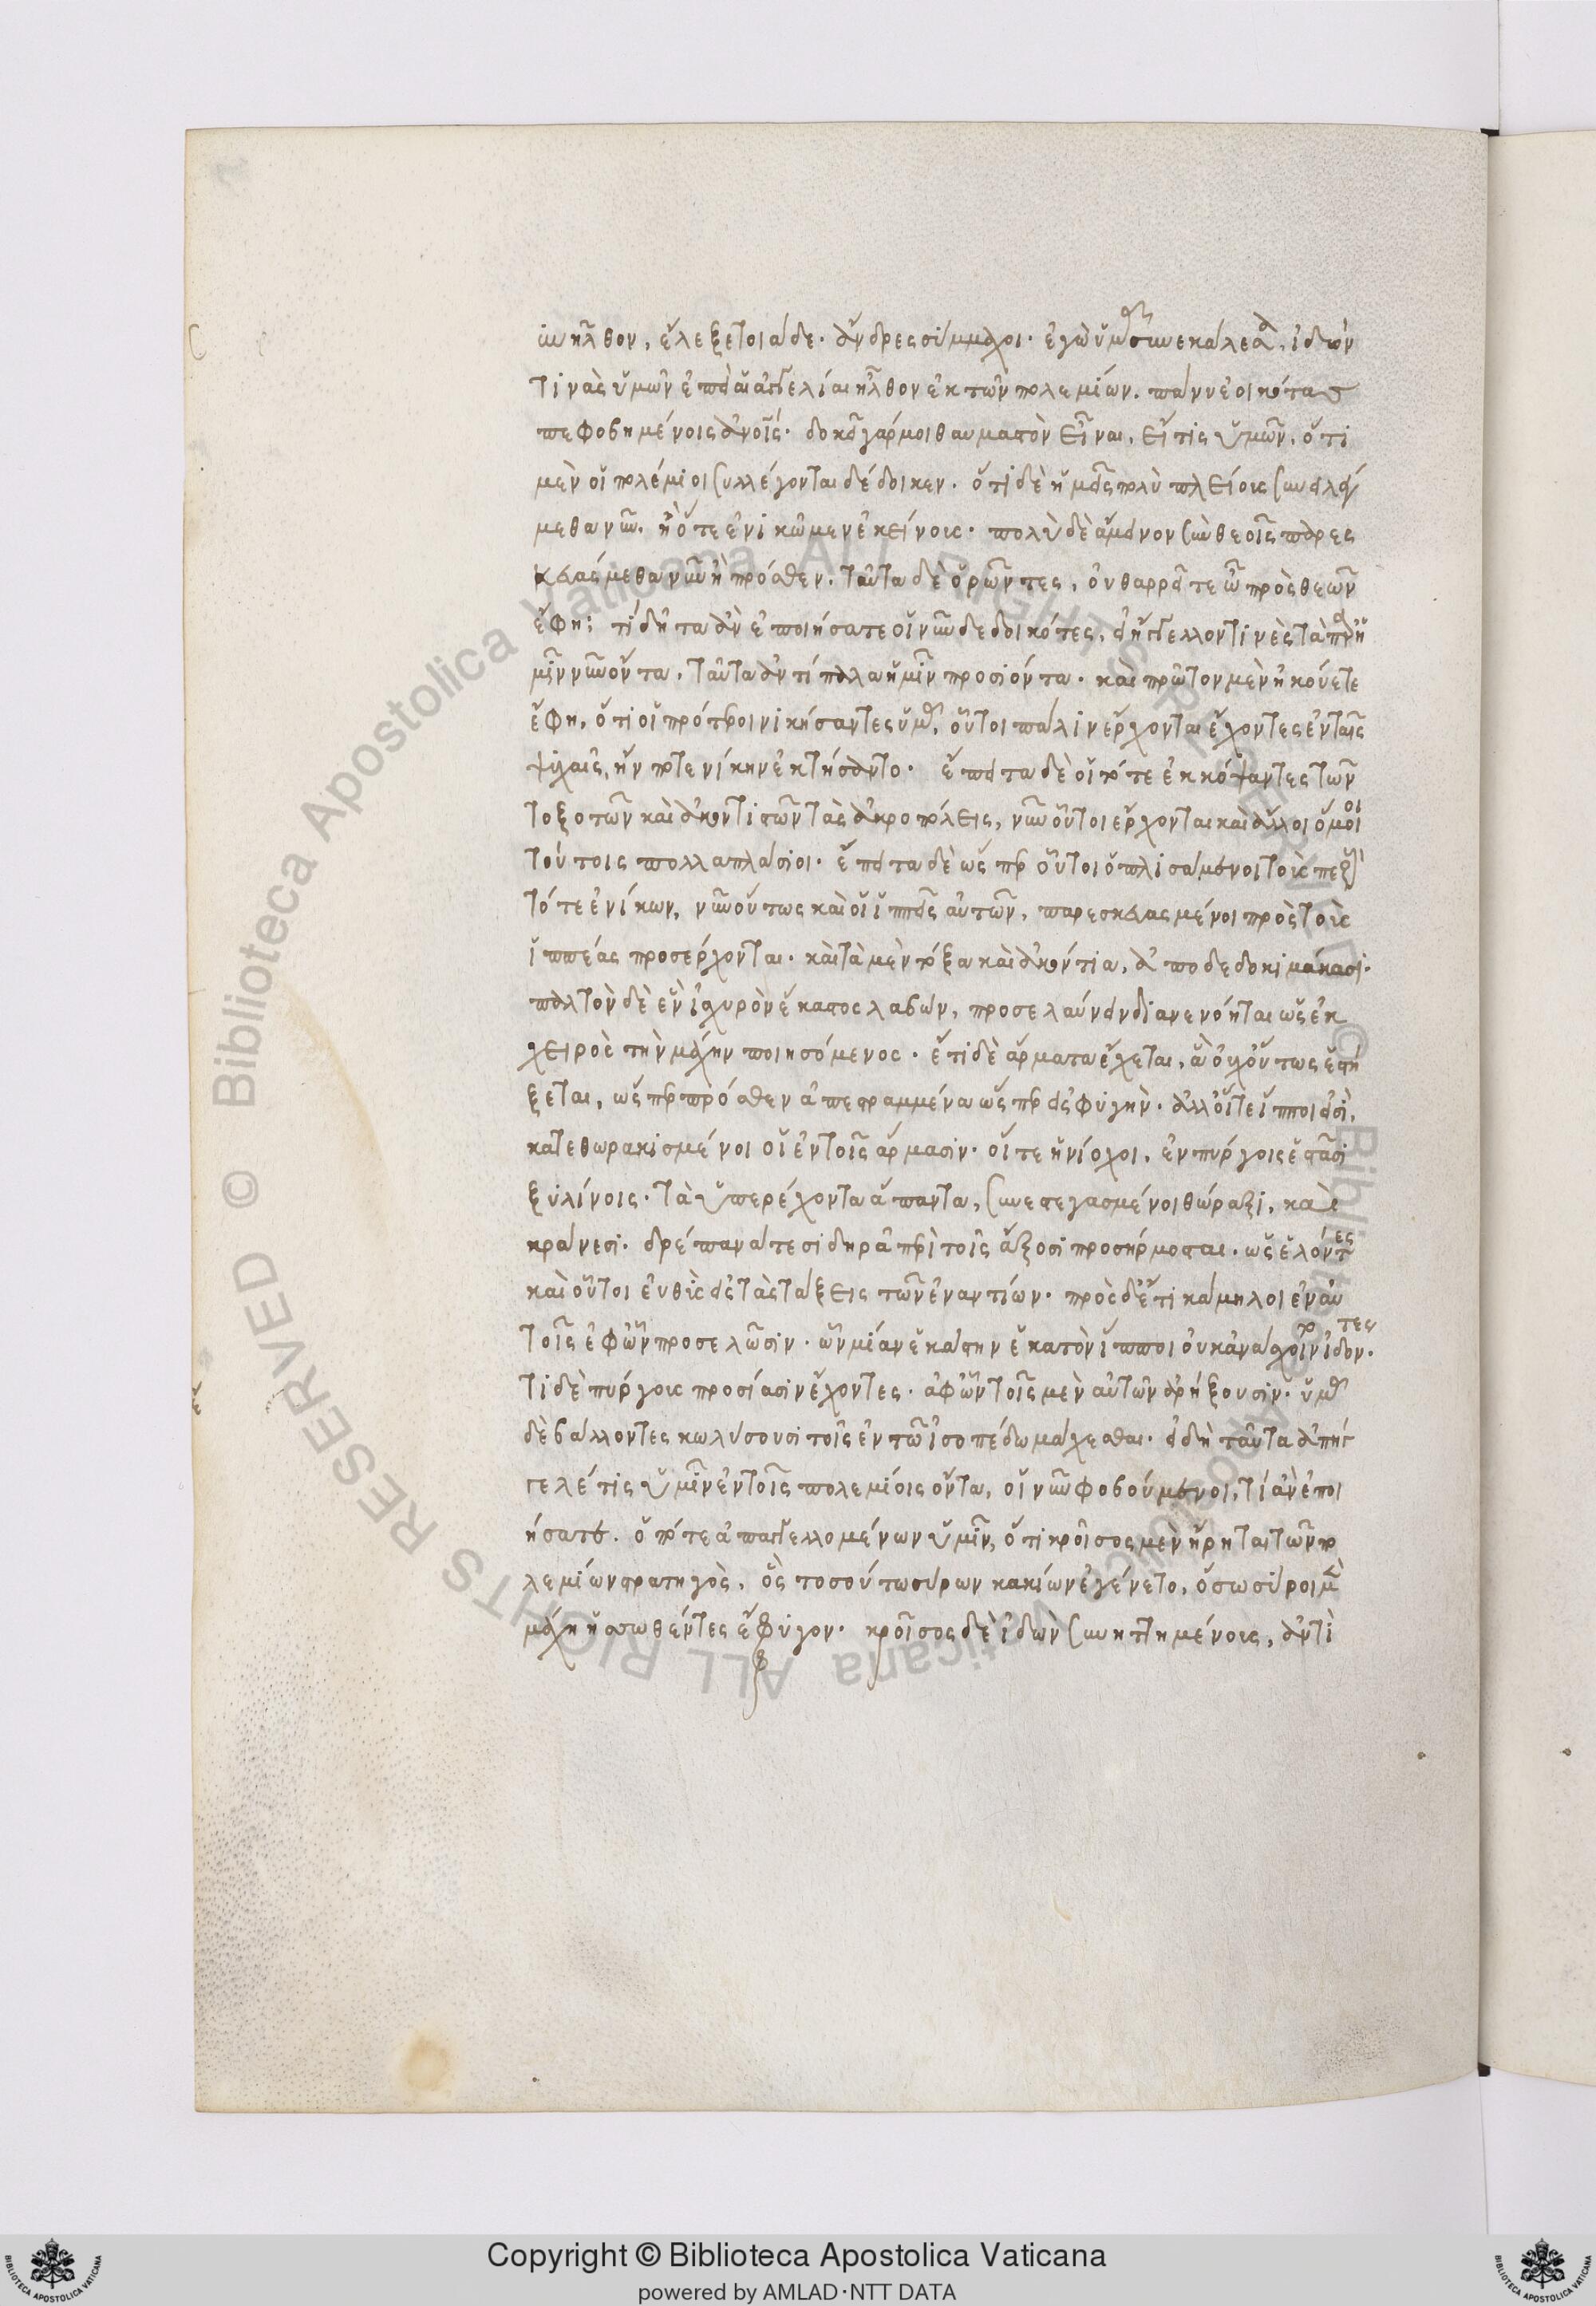 υνῆλθον, ἔλεξε τοιάδε. ἄνδρες σύμμαχοι. ἐγὼ ὑμᾶς συνεκάλεσα, ἰδών
τινὰς ὑμῶν ἐπεὶ αἱ ἀγγελίαι ἦλθον ἐκ τῶν πολεμίων. πάνυ ἐοικότας
πεφοβημένοις ἀνοις. δοκεῖ γάρ μοι θαυμαστὸν εἶναι, εἴ τις ὑμῶν, ὅτι
μὲν οἱ πολέμιοι συλλέγονται δέδοικεν. ὅτι δὲ ἡμεῖς πολὺ πλείους συνειλέγ
μεθα νῦν. ἢ ὅτε ἐνικῶμεν ἐκείνους. πολὺ δὲ ἄμεινον σὺν θεοῖς παρεσ
κευάσμεθα νῦν ἢ πρόσθεν. ταῦτα δὲ ὁρῶντες, οὐ θαρρεῖτε ὦ πρὸς θεῶν
ἔφη; τί δῆτα ἂν ἐποιήσατε οἱ νῦν δεδοικότες, εἰ ἤγγελλον τινὲς τὰ παρ ἡ
μῖν νῦν ὄντα, ταῦτα ἀντίπαλα ἡμῖν προσιόντα. καὶ πρῶτον μὲν ἠκούετε
ἔφη, ὅτι οἱ πρότεροι νικήσαντες ὑμᾶς, οὗτοι πάλιν ἔρχονται ἔχοντες ἐν ταῖς
ψυχαῖς, ἣν τότε νίκην ἐκτήσαντο. ἔπειτα δὲ οἱ τότε ἐκκόψαντες τῶν
τοξοτῶν καὶ ἀκοντιστῶν τὰς ἀκροπόλεις, νῦν οὗτοι ἔρχονται καὶ ἄλλοι ὅμοιοι
τούτοις πολλαπλάσιοι. ἔπειτα δὲ ὥσπερ οὗτοι ὁπλισάμενοι τοὺς πεζοὺς
τότε ἐνίκων, νῦν οὕτως καὶ οἱ ἱππεῖς αὐτῶν, παρεσκευασμένοι πρὸς τοὺς
ἱππέας προσέρχονται. καὶ τὰ μὲν τόξα καὶ ἀκόντια, ἀποδεδοκιμάκασι.
παλτὸν δὲ ἓν ἰσχυρὸν ἕκαστος λαβών, προσελαύνειν διανενόηται ὡς ἐκ
χειρὸς τὴν μάχην ποιησόμενος. ἔτι δὲ ἅρματα ἔχεται, ἃ οὐχ οὕτως ἑστή
ξεται, ὥσπερ πρόσθεν ἀπεστραμμένα ὥσπερ εἰς φυγὴν. ἀλλ οἵ τε ἵπποι εἰσὶ,
κατεθωρακισμένοι οἱ ἐν τοῖς ἅρμασιν. οἵ τε ἡνίοχοι, ἐν πύργοις ἑστᾶσι
ξυλίνοις. τὰ ὑπερέχοντα ἅπαντα, συνεστεγασμένοι θώραξι, καὶ
κράνεσι. δρέπανά τε σιδηρᾶ περὶ τοῖς ἄξοσι προσήρμοσται. ὡς ἐλόντες
καὶ οὗτοι εὐθὺς εἰς τὰς τάξεις τῶν ἐναντίων. πρὸς δ ἔτι κάμηλοι ἐν αὐ
τοῖς ἐφ ὧν προσελῶσιν. ὧν μίαν ἑκάστην ἑκατὸν ἵπποι οὐκ ἀνάσχοιντο ἰδόντες.
τι δὲ πύργους προσίασιν ἔχοντες. ἀφ ὧν τοῖς μὲν αὐτῶν ἀρήξουσιν. ὑμᾶς
δὲ βάλλοντες κωλύσουσι τοῖς ἐν τῶ ἰσοπέδω μάχεσθαι. εἰ δὴ ταῦτα ἀπήγ
γελέ τις ὑμῖν ἐν τοῖς πολεμίοις ὄντα, οἱ νῦν φοβούμενοι, τί ἂν ἐποι
ήσατε. ὁπότε ἀπαγγελλομένων ὑμῖν, ὅτι κροῖσος μὲν ᾕρηται τῶν πο
λεμίων στρατηγὸς, ὃς τοσούτω σύρων κακίων ἐγένετο, ὅσω σύροι μὲν
μάχη ἡσσωθέντες ἔφυγον. κροῖσος δὲ ἰδὼν συνηττημένους, ἀντὶ